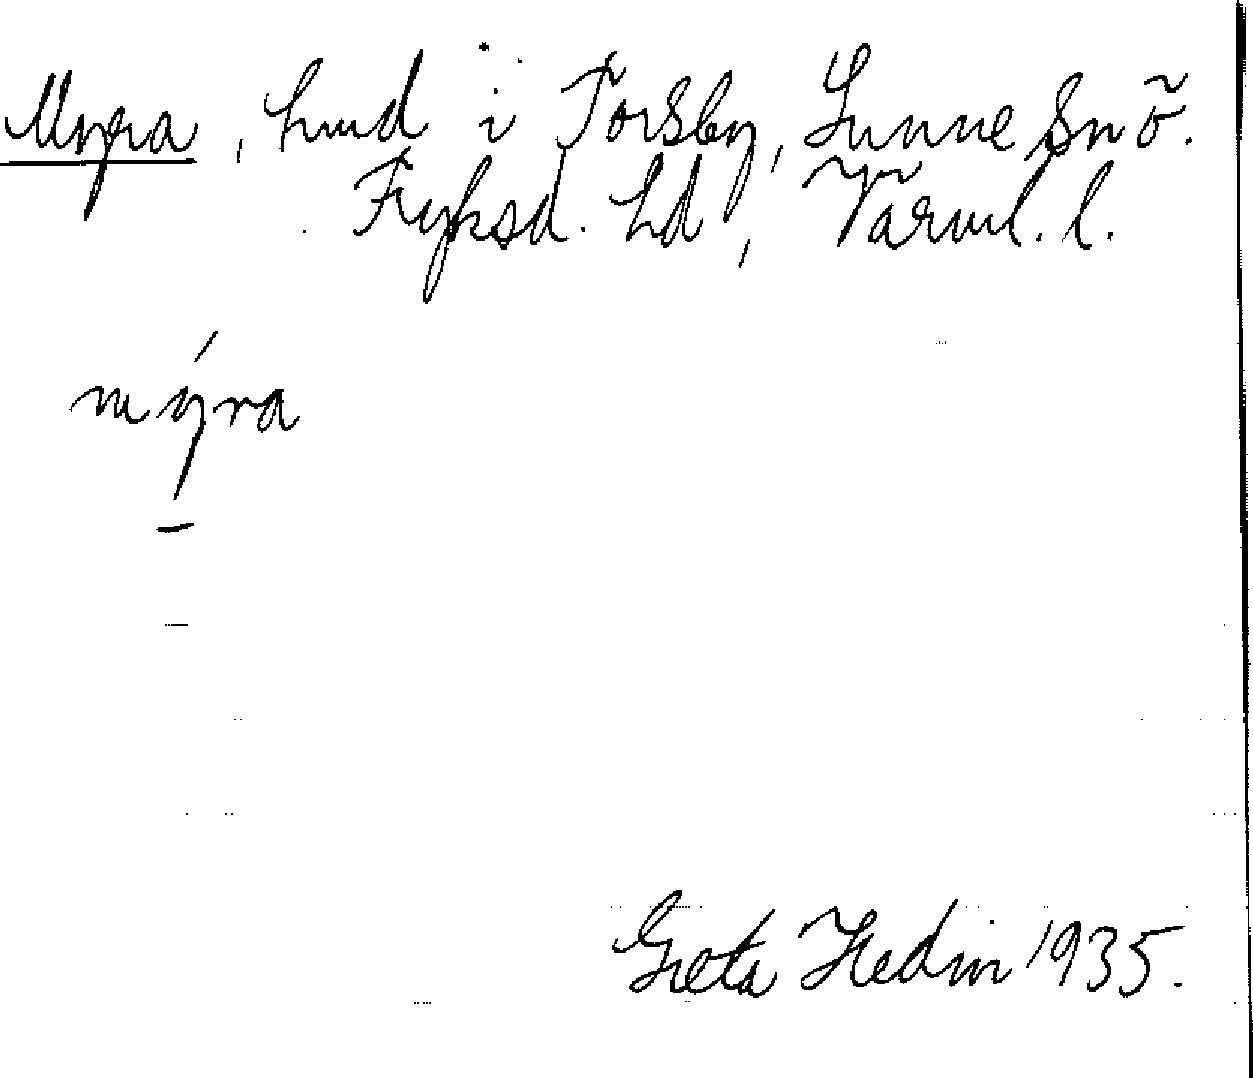 Myra, hmd i Torsby, Sunne sn o.
Fryksd. hd, Värml. l.
mýra
Greta Hedin 1935.